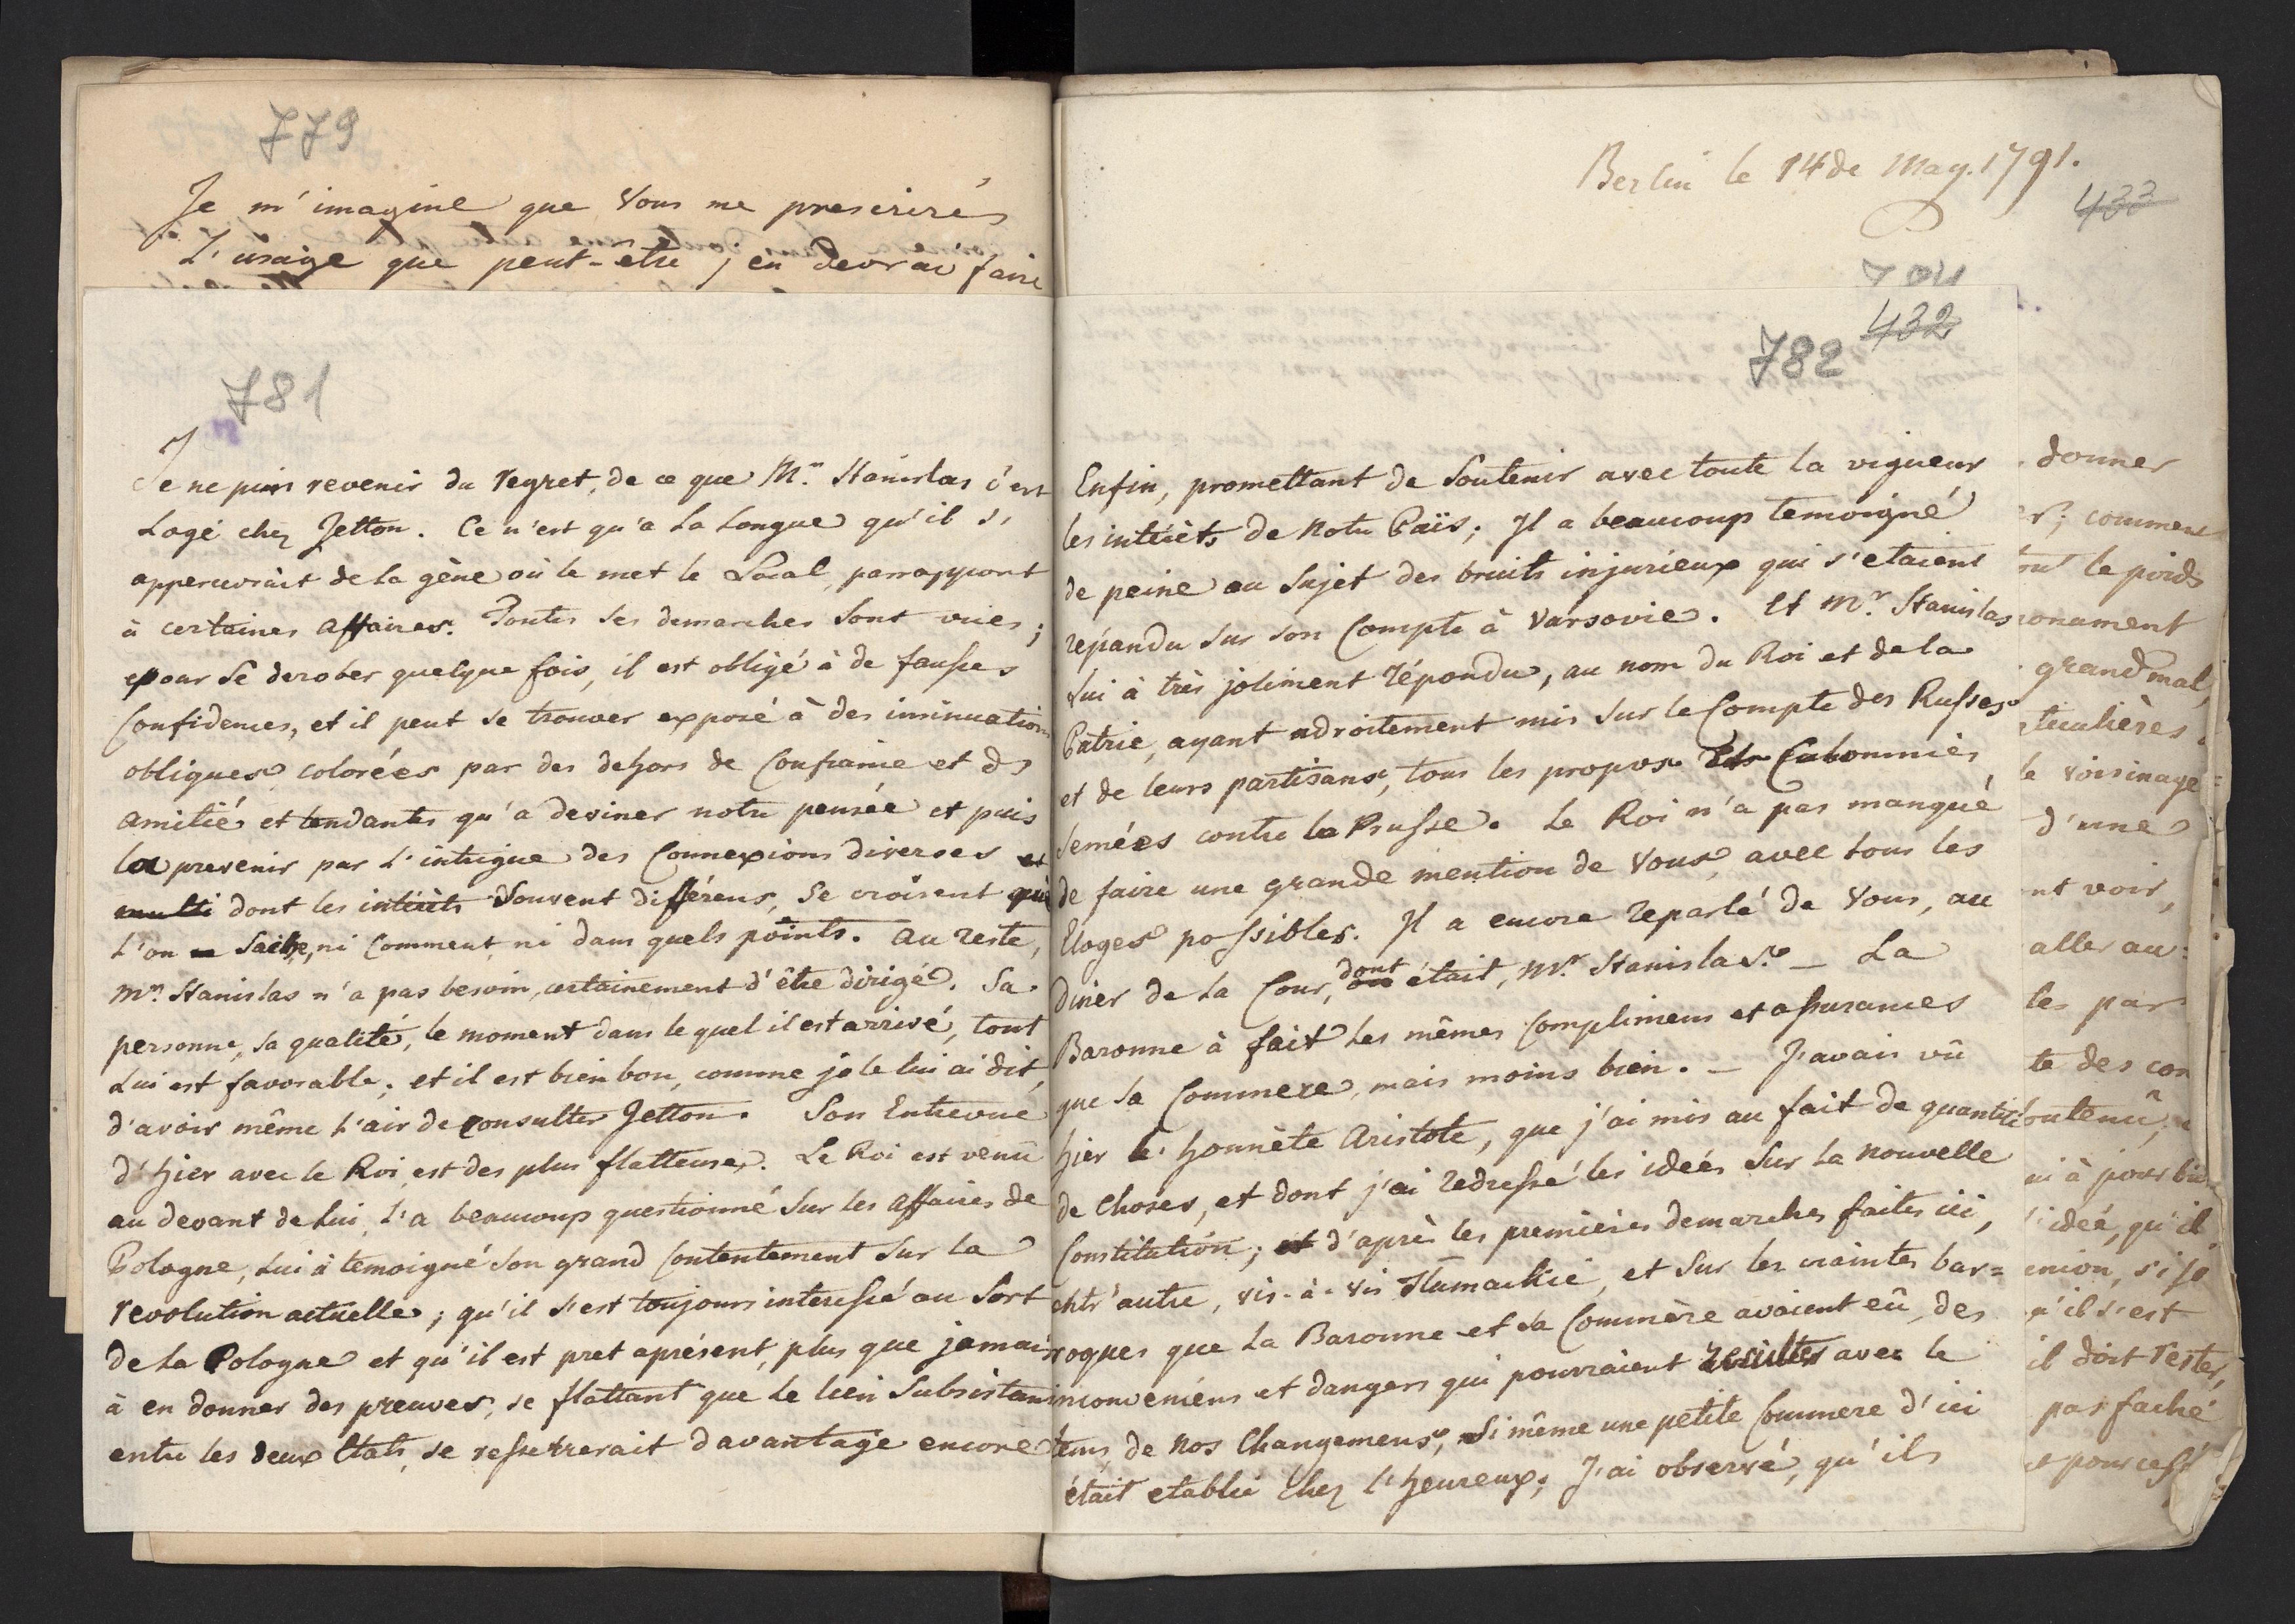 779
Je m'imagine que Vous me prescrirés
L'usaige que peut-être j'en devrai faire
781
Je ne puis revenir du regret, de ce que Mr. Stanislas s'est
Logé chez Jetton. Ce n'est qu'a la longue qu'il s'
appercevrait de la gène où le met le Local, parrapport
à certaines affaires. Toutes ses demarches sont vues;
pour se derober quelque fois, il est obligé à de fausses
Confidences, et il peut se trouver exposé à des insinuations
obliques colorées par des dehors de Confiance et d
amitié et tendantes qu'a deviner notre pensée et puis
la prevenir par l'intrigue des Connexions diverses
dont les intérêts souvent différens, se croisent que
l'on sache, ni Comment, ni dans quels points. Au reste,
Mr. Stanislas n'a pas besoin, certainement d'être dirigé. Sa
personne, sa qualité, le moment dans le quel il est arrivé, tout
Lui est favorable; et il est bien bon, comme je le lui ai dit,
d'avoir même l'air de consulter Jetton. Son Entrevue
d'hier avec le Roi, est des plus flatteuses. Le Roi est venû
au devant de lui, l'a beaucoup questionné sur les affaires de
Pologne, lui à temoigné son grand Contentement sur la
revolution actuelle; qu'il s'est toujours interessé au Sort
de la Pologne et qu'il est pret aprésent, plus que jamais
à en donner des preuves, se flattant que le lien subsistant
entre les deux Etats, se resserrerait davantage encore
Berlin le 14 de May. 1791.
433
704
432
782
Enfin, promettant de Soutenir avec toute la vigueur
les intérêts de Notre Païs; Il a beaucoup temoigné
de peine au Sujet des bruits injurieux qui s'etaient
repandu sur son Compte à Varsovie. Et Mr. Stanislas
Lui à très joliment répondu, au nom du Roi et de la
Patrie, ayant adroitement mis sur le Compte des Russes
et de leurs partisans, tous les propos Calomnies
semées contre la Prusse. Le Roi n'a pas manqué
de faire une grande mention de Vous, avec tous les
Eloges possibles. Il a encore reparlé de Vous, au
Diner de la Cour, dont était, Mr. Stanislas. — La
Baronne à fait les mêmes Complimens et assurances
que la Commere, mais moins bien. — J'avais vû
hier l'honnète Aristote, que j'ai mis au fait de quantité
de Choses, et dont j'ai redressé les idées sur la nouvelle
Constitution; d'après les premières demarches faites ici,
entr'autre, vis-à-vis Stumackié, et sur les craintes bar=
roques que la Baronne et sa Commère avaient eû, des
inconveniens et dangers qui pourraient resulter avec le
tems, de nos Changemens, si même une petite Commere d'ici
était etablie chez l'heureux; J'ai observé, qu'ils
donner
er; comment
tout le poids
grand mal,
ticulières
le voisinage
d'une
nt voir,
aller au=
tes par
te des con
outenû,
l'idée, qu'il
enion, si je
qu'il s'est
il doit rester,
pas faché